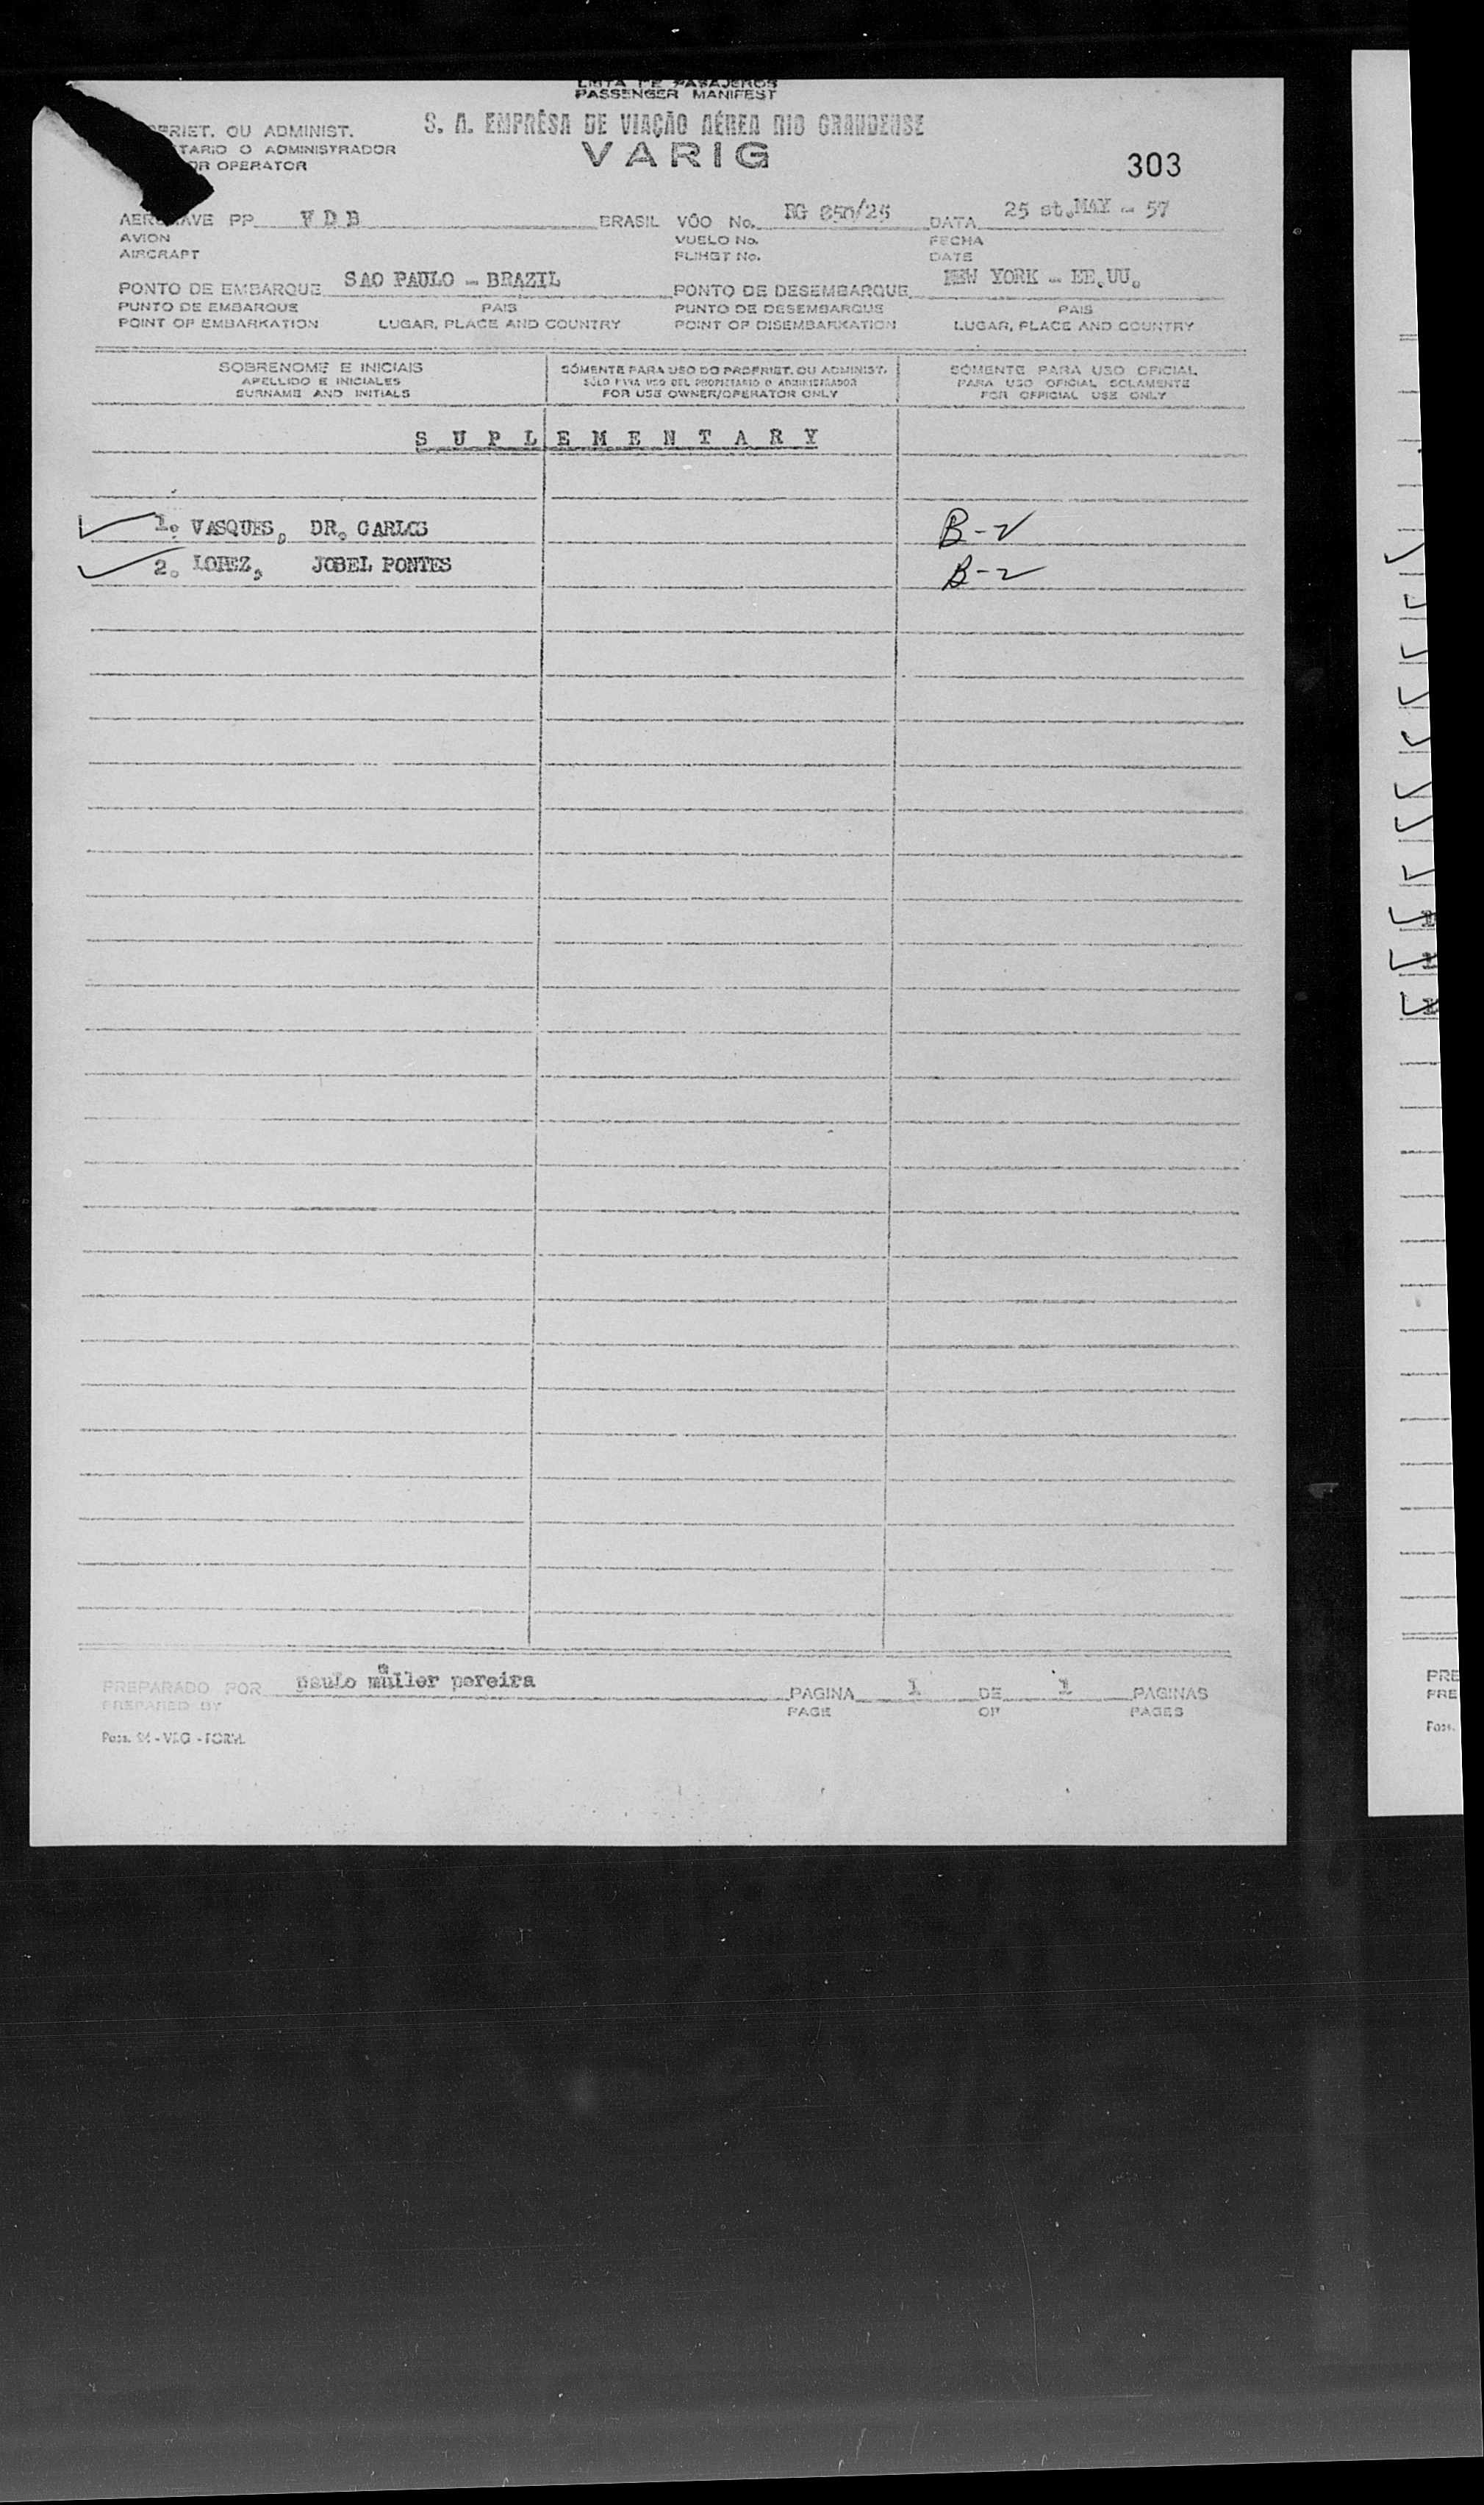 LISTA DE PASAJEROS
PASSENGER MANIFEST
PRIET. OU ADMINIST.
TARIO O ADMINISTRADOR
OR OPERATOR
S. A. EMPRÊSA DE VIAÇÃO AÉREA RIO GRANDENSE
VARIG
303
AERONAVE PP V D B BRASIL VÔO No. RG 850/25 DATA 25 st.MAY - 57
AVION VUELO No. FECHA
AIRCRAFT FLIHGT No. DATE
PONTO DE EMBARQUE SAO PAULO - BRAZIL PONTO DE DESEMBARQUE NEW YORK - EE.UU.
PUNTO DE EMBARQUE PAIS PUNTO DE DESEMBARQUE PAIS
POINT OF EMBARKATION LUGAR, PLACE AND COUNTRY POINT OF DISEMBARKATION LUGAR, PLACE AND COUNTRY
SOBRENOME E INICIAIS SÓMENTE PARA USO DO PROPRIET. OU ADMINIST. SÓMENTE PARA USO OFICIAL
APELLIDO E INICIALES SÓLO PARA USO DEL PROPIETARIO O ADMINISTRADOR PARA USO OFICIAL SOLAMENTE
SURNAME AND INITIALS FOR USE OWNER/OPERATOR ONLY FOR OFFICIAL USE ONLY
S U P L E M E N T A R Y
1. VASQUES, DR. CARLOS B-2
2. LOPEZ, JOBEL PONTES B-2
PREPARADO POR paulo müller pereira PAGINA 1 DE 1 PAGINAS
PREPARED BY PAGE OF PAGES
Pass. - VRG - FORM.
PRE
PRE
Pass.